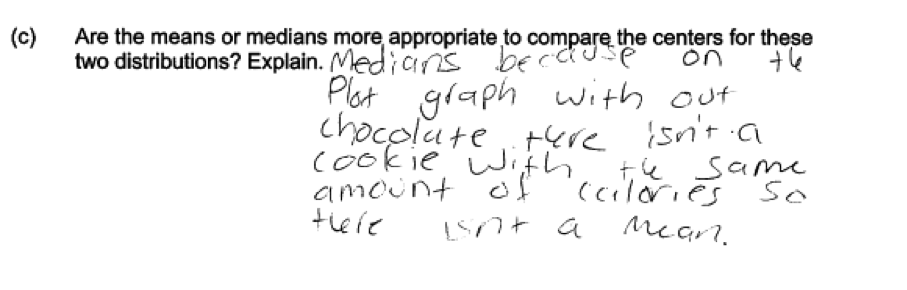 (c) Are the means or medians more appropriate to compare the centers for these
two distributions? Explain. Medians because on the
Plot graph with out
chocolate there isn't a
cookie with the same
amount of calories so
there isnt a mean.